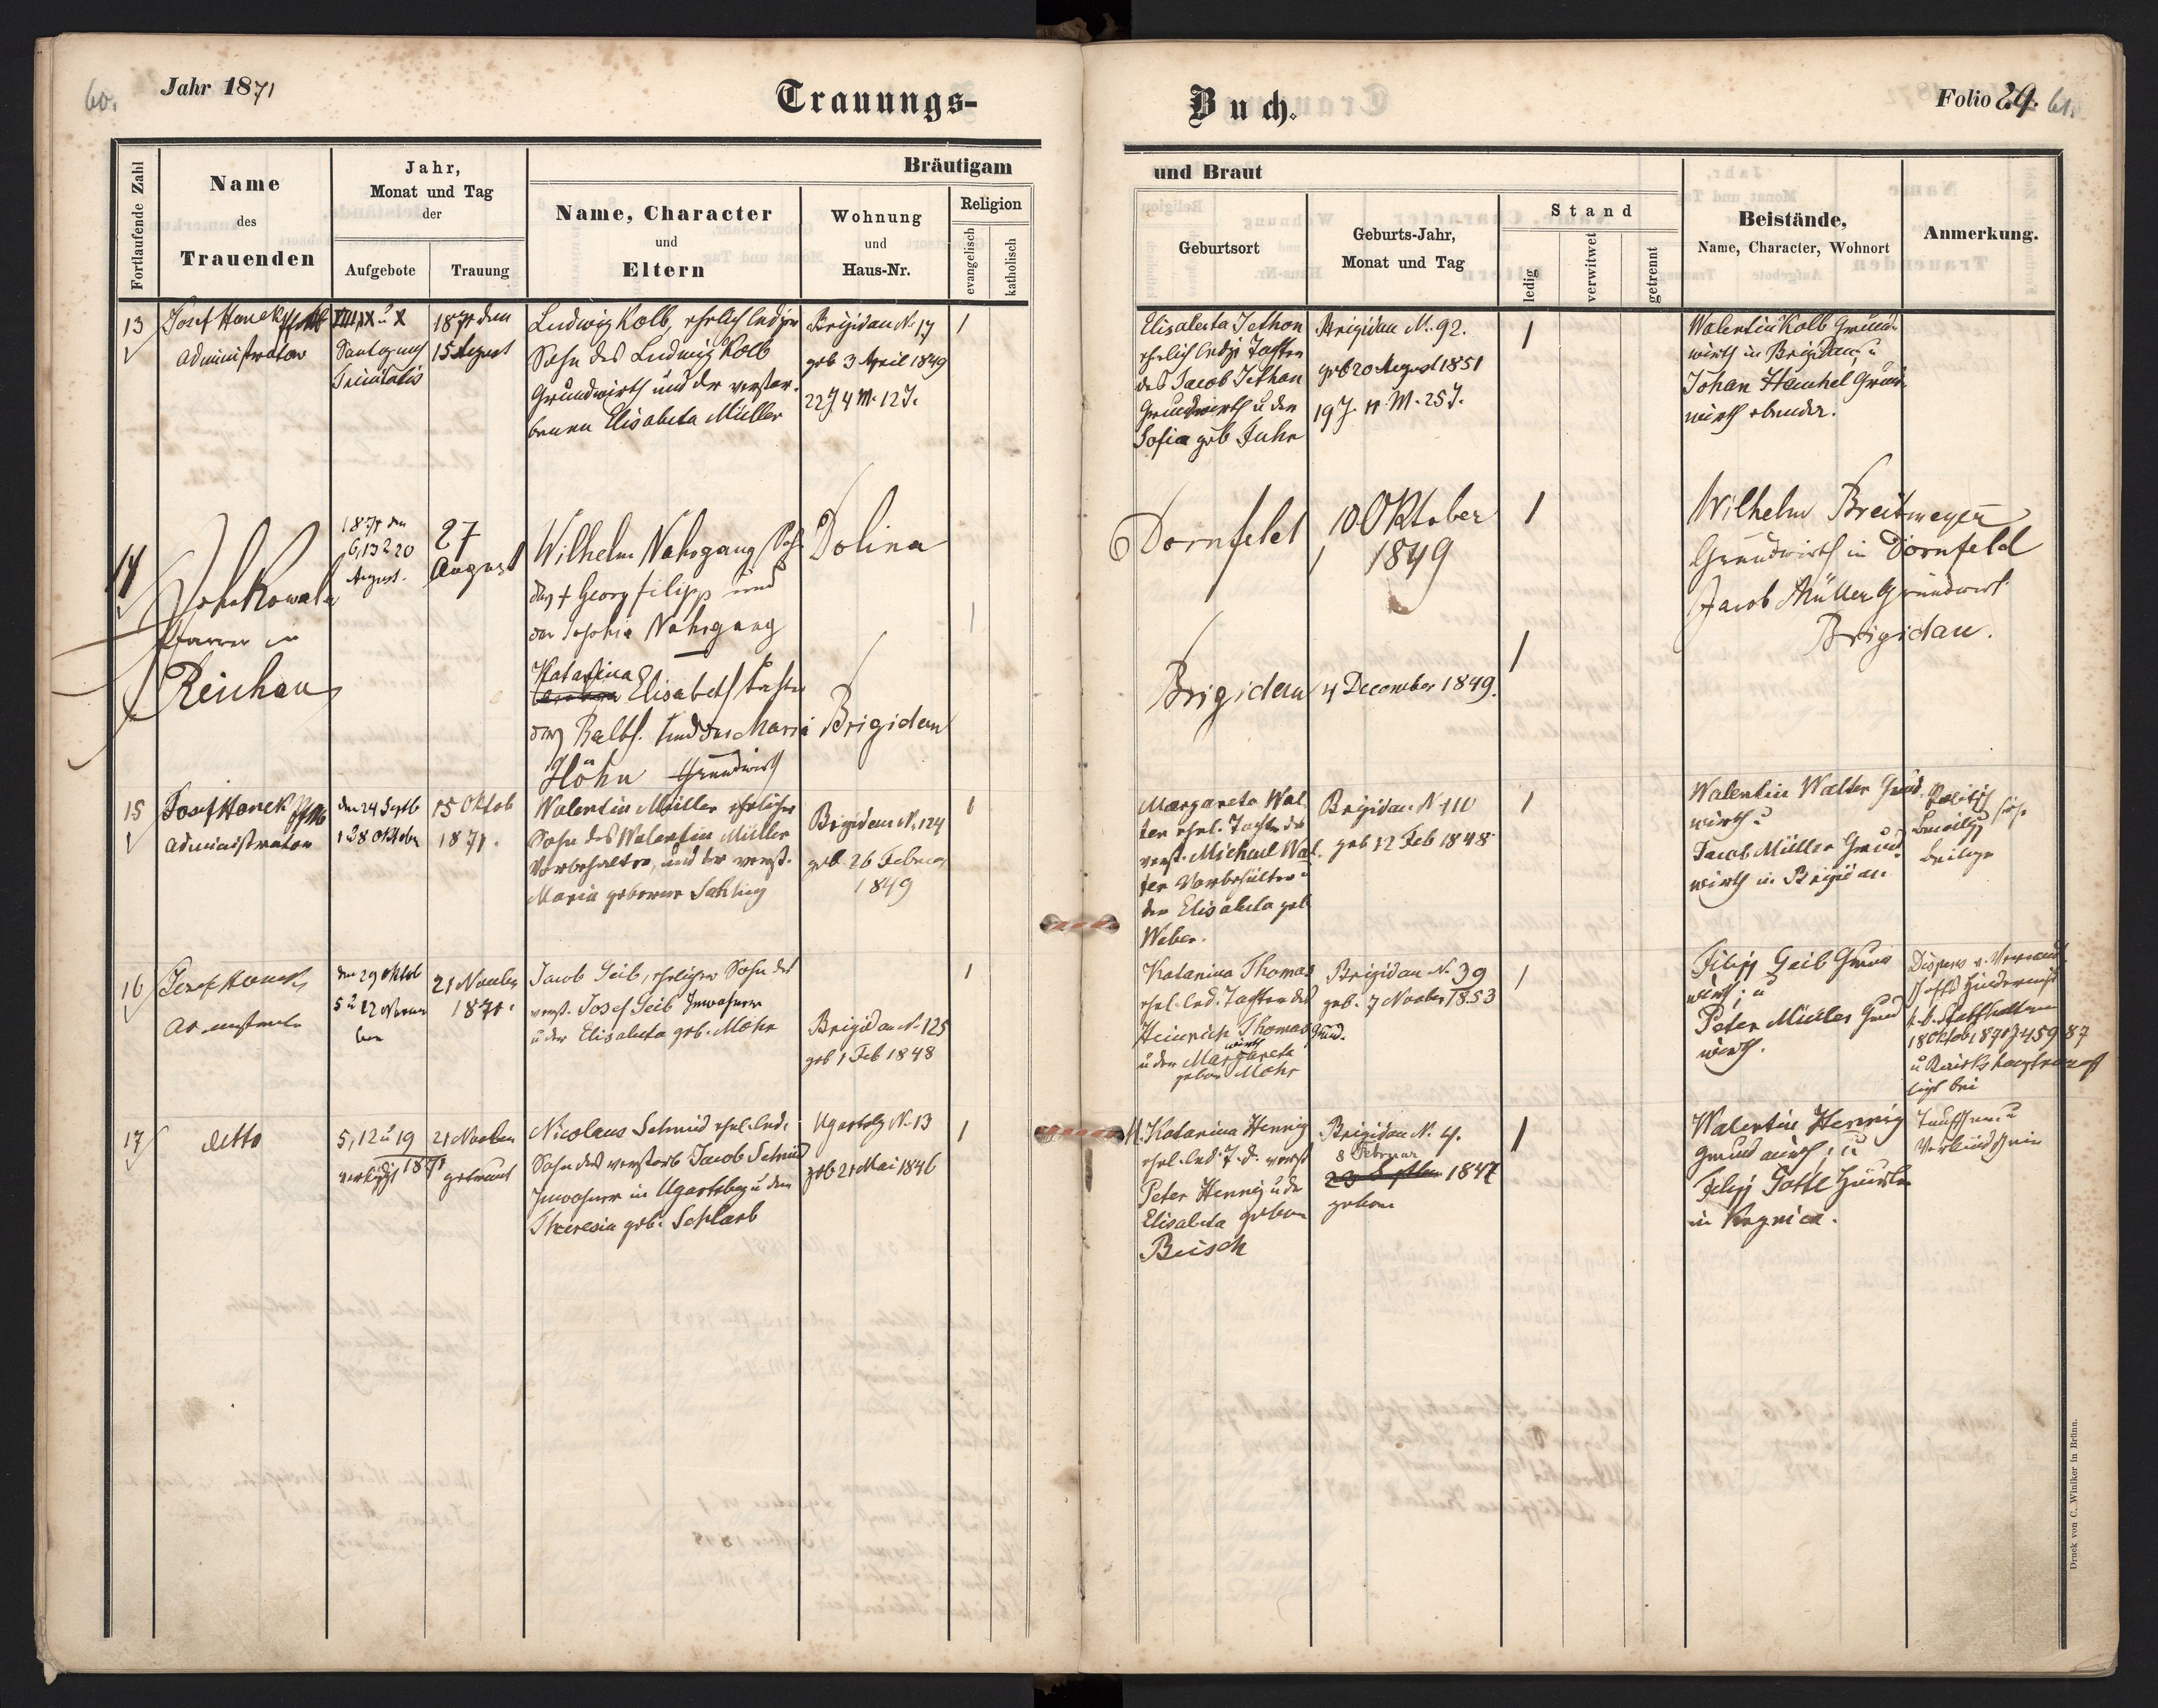 60.
Jahr 1871
Trauungs-
Buch.
Folio 29. 61.
Fortlaufende Zahl
Name
des
Trauenden
Jahr,
Monat und Tag
der
Aufgebote
Trauung
Bräutigam
Name, Character
und
Eltern
Wohnung
und
Haus-Nr.
Religion
evangelisch
katholisch
und Braut
Geburtsort
Geburts-Jahr,
Monat und Tag
Stand
ledig
verwitwet
getrennt
Beistände,
Name, Character, Wohnort
Anmerkung.
13
Josef Hanek
Administrator
VIII, IX u X
Sontag nach
Trinitatis
1871 den
15 August
Ludwig Kolb, ehelich lediger
Sohn des Ludwig Kolb
Grundwirth und der verstor-
benen Elisabeta Müller
Brigidau N. 17
geb 3 April 1849
22 J 4 M. 12 T.
1
Elisabeta Jethon
ehelich ledige Tochter
des Jacob Jethon
Grundwirth u der
Sofia geb Fuhr
Brigidau N. 92.
geb 20 August 1851
19 J. 11 M. 25 T.
1
Valentin Kolb Grund-
wirth in Brigidau u
Johan Henchel Grund
wirth ebender.
14
Joh Kowala
Pfarrer in
Reichau
1871 den
6, 13 u 20
August.
27
August
Wilhelm Nahrgang Sohn
des + Georg Filipp und
der Sophia Nahrgang
Dolina
Katarina
Elisabeth Tochter
des Balth. und der Maria
Höhn Grundwirth
Brigidau
1
Dornfeld
10 Oktober
1849
1
Brigidau
4 December 1849.
1
Wilhelm Breitmeyer
Grundwirth in Dornfeld
Jacob Müller Grundwirth
Brigidau.
15
Josef Hanek
Administrator
den 24 Septb
1 u 8 Oktober
15 Oktob
1871.
Valentin Müller ehelicher
Sohn des Valentin Müller
Vorbehalter, und der verst.
Maria geborene
Brigidau N. 124
geb. 26 Februar
1849
1
Margareta Wal
ter ehel. Tochter des
verst. Michael Wal
ter Vorbehälter u
der Elisabeta geb
Weber.
Brigidau N 110
geb 12 Feb 1848
1
Valentin Walter Grund
wirth u
Jacob Müller Grund
wirth in Brigidau
Beilage
16
Josef Hanek
den 29 Oktob
5 u 12 Novem
ber
21 November
1871.
Jacob Geib, ehelicher Sohn des
verst. Josef Geib Inwohner
u der Elisabeta geb. Mohr
Brigidau N. 125
geb 1 Feb 1848
1
Katarina Thomas
ehel. led. Tochter des
Heinrich Thomas Grund.
wirth
u der Margareta
gebor Mohr
Brigidau N. 39
geb. 7 November 1853
1
Filipp Geib Grund
wirth; u
Peter Müller Grund
wirth.
Dispens v. Verwandt
schafts Hinderniß
k. k. Statthalterei
18 Oktob 1871 Z 45987
liegt bei
17
detto
5, 12 u 19
1871
21 November
getraut
Nicolaus Schmid ehel. led.
Sohn des verstorb Jacob Schmid
Inwohner in Ugartsberg u der
Theresia geb. Schlarb
Ugartsbg N. 13
geb 21 Mai 1846
1
Katarina Hennig
ehel. led. T. d. verst
Peter Hennig u der
Elisabeta geboren
Busch
Brigidau N. 4.
8 Februar
1847
geboren
1
Valentin Hennig
Grundwirth; u
Filip
in
Taufschein u
Verkündschein
Druck von C. Winiker in Brünn.